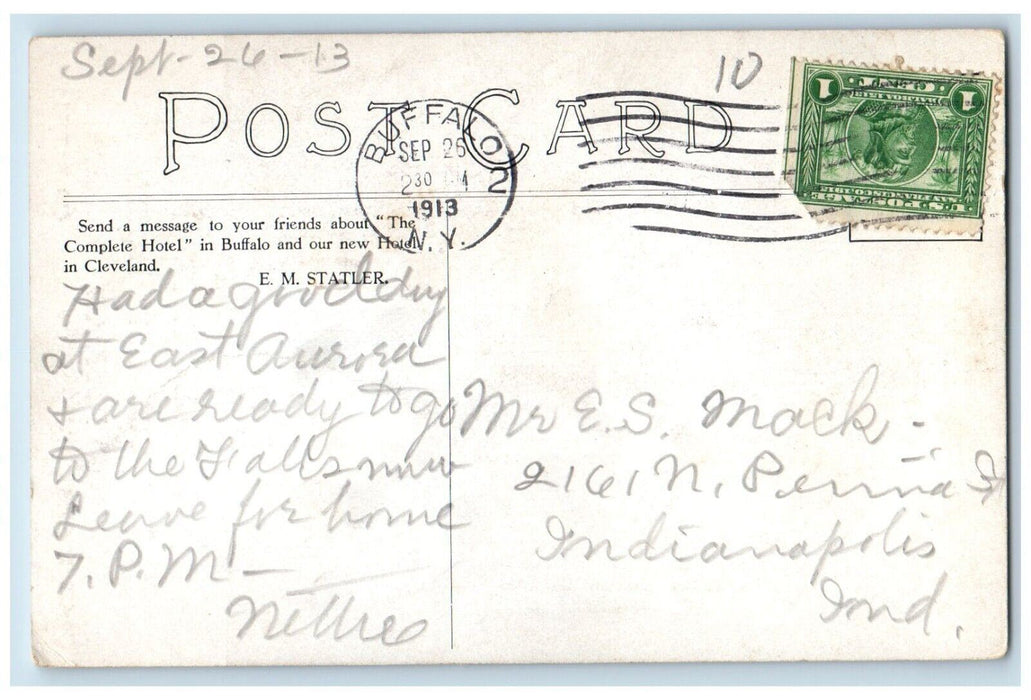 Sept-26-13
10
POST CARD
BUFFALO
SEP 26
2 30 M
1913
N. Y.
2
1 CENT 1
U.S. POSTAGE
Send a message to your friends about "The
Complete Hotel" in Buffalo and our new Hotel
in Cleveland.
E. M. STATLER.
Had a good day
at East Aurora
& are ready to go
to the Falls now
Leave for home
7. P. M -
Nettie
Mr E. S. Mack -
2161 N. Penna St
Indianapolis
Ind.